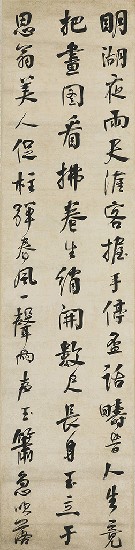 明湖夜雨天涯客握手停盃話疇昔人生竟
把畫圖看拂卷生綃開數尺長身玉立于
思翁美人促柱彈春風一聲兩声玉簫急吹落